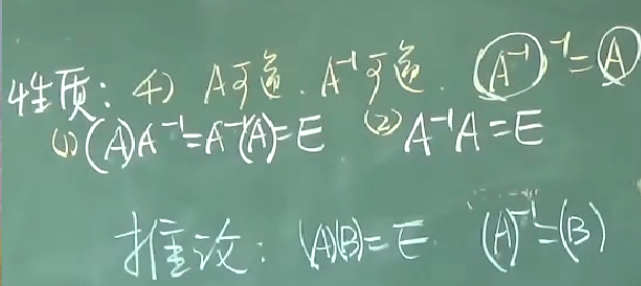 性质: 4) A可逆. A⁻¹可逆. (A⁻¹)⁻¹=A
(1) (A)A⁻¹=A⁻¹(A)=E (2) A⁻¹A=E
推论: (A)(B)=E. (A)⁻¹=(B)